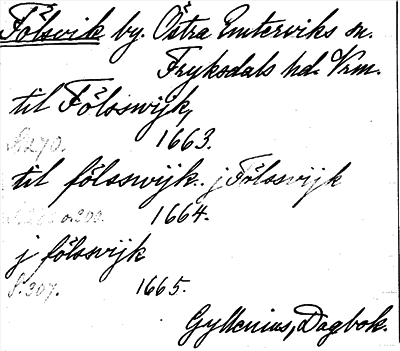 Fölsvik by. Östra Emterviks sn.
Fryksdals hd. Vrm.
til Fölsswijk,
S. 270. 1663.
til fölsswijk. j Fölssvijk
o. 303. 1664.
j fölssvijk
S. 307. 1665.
Gyllenius, Dagbok.